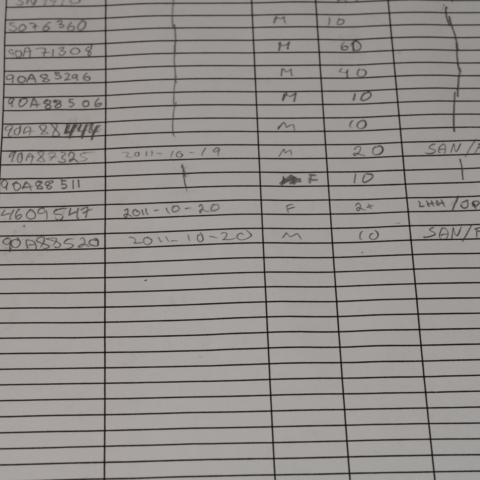 5076360 M 10
90A71308 M 60
90A85296 M 40
90A88506 M 10
90A88444 M 10
90A87325 2011-10-19 M 20 SAN/
90A88511 F 10
4609547 2011-10-20 F 2+ LHH/OP
90A88520 2011-10-20 M 10 SAN/